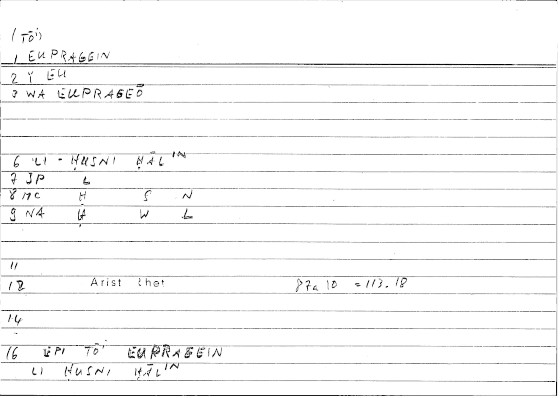 (TŌⁱ)
1 EUPRAGEIN
2 Y EU
3 WA EUPRAGEŌ
6 LI - ḤUSNI ḤĀLᴵᴺ
7 JP L
8 MC Ḥ S N
9 NA Ḥ W L
11
12 Arist rhet 87a 10 = 113.18
14
16 EPI TŌⁱ EUPRAGEIN
LI ḤUSNI ḤĀLᴵᴺ